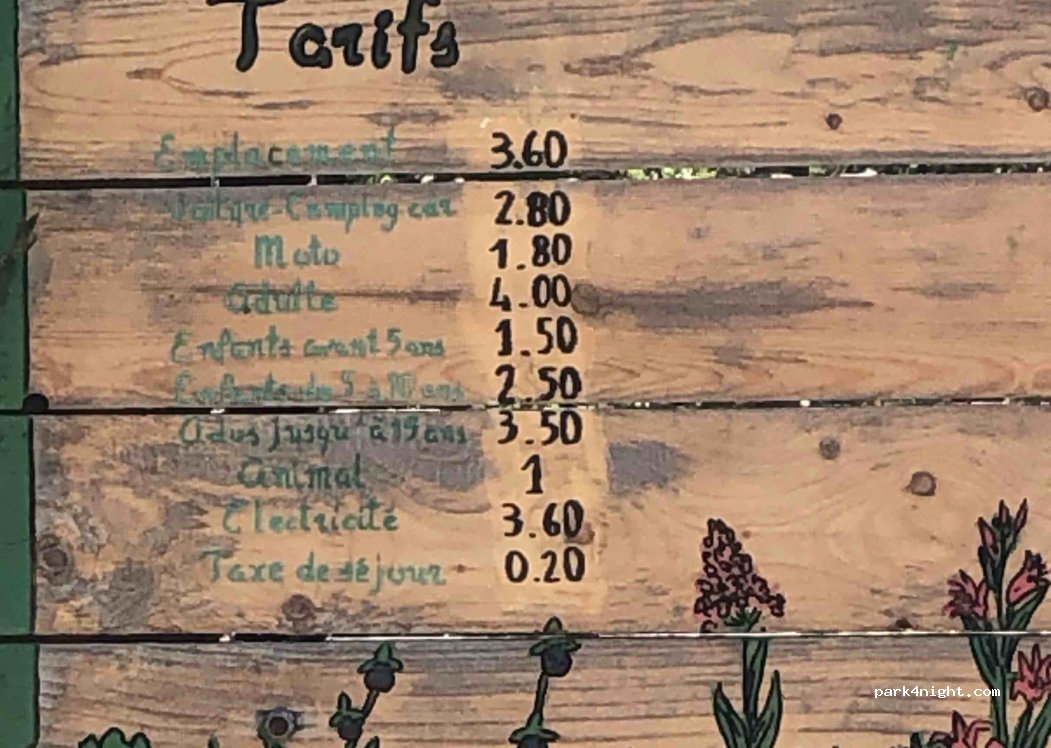 Tarifs
Emplacement 3.60
Voiture-Camping car 2.80
Moto 1.80
Adulte 4.00
Enfants avant 5 ans 1.50
Enfants de 5 à 10 ans 2.50
Ados jusqu'à 15 ans 3.50
Animal 1
Electricité 3.60
Taxe de séjour 0.20
park4night.com